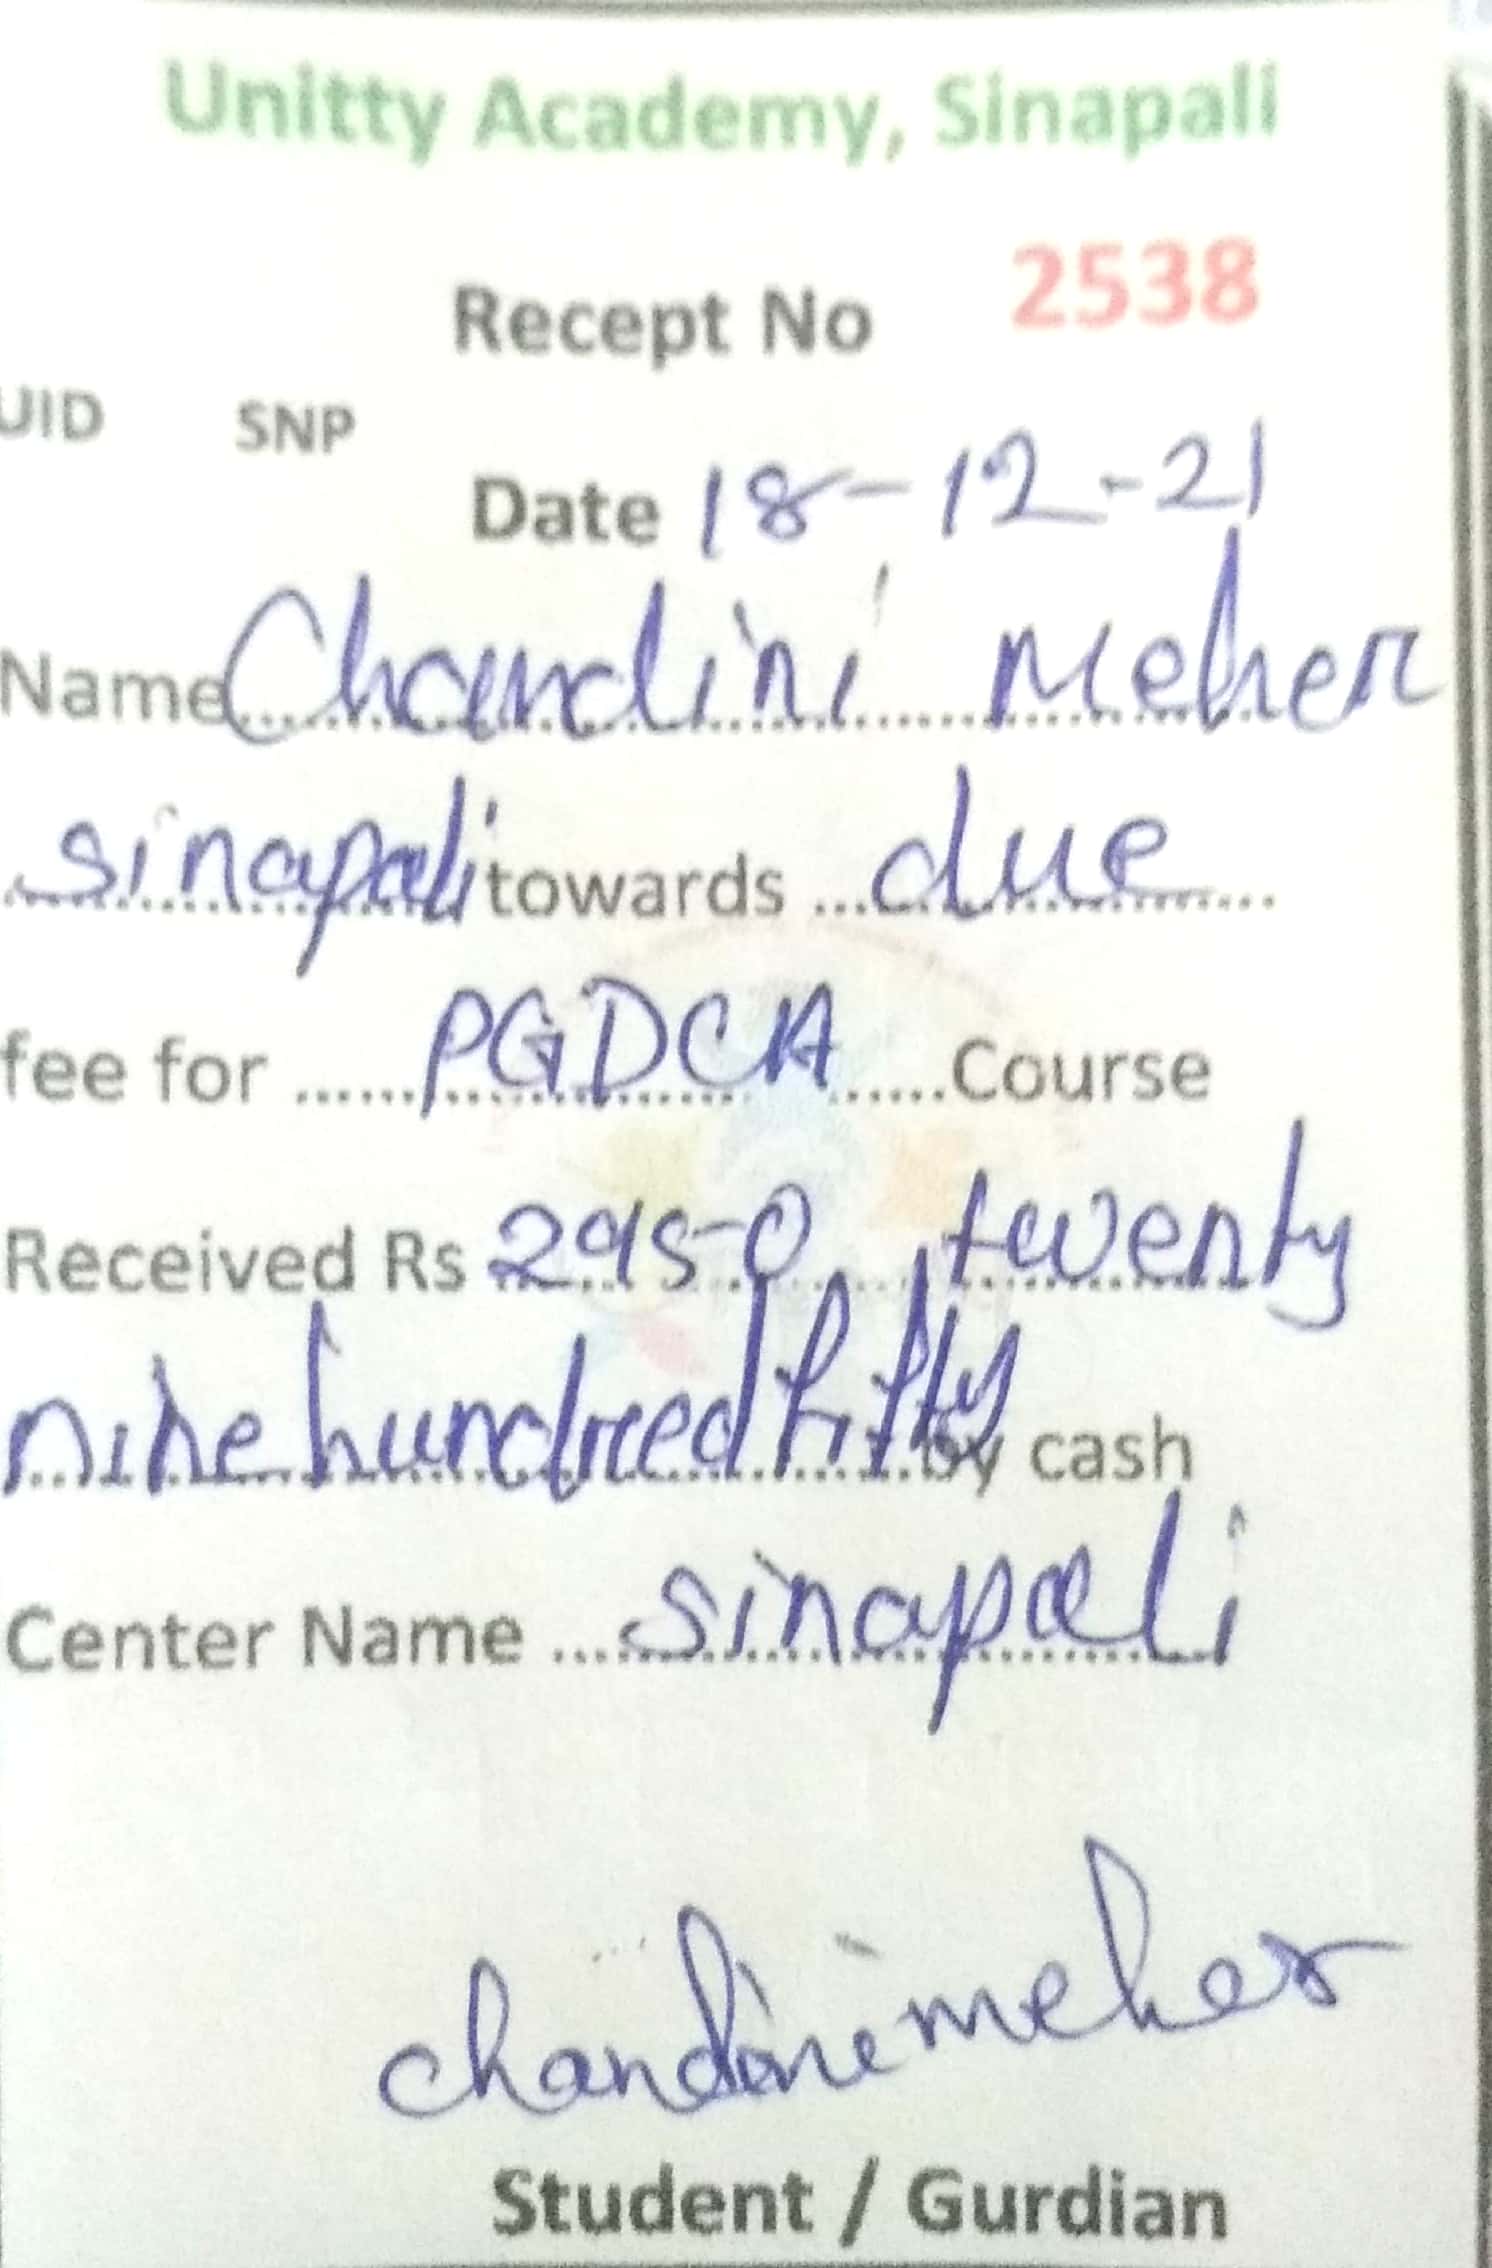 Unitty Academy, Sinapali
Recept No 2538
UID SNP
Date 18-12-21
Name Chandini Meher
sinapali towards ... due
fee for ...... PGDCA ...... Course
Received Rs 2950, twenty
nine hundred fifty by cash
Center Name ... sinapali
chandini meher
Student / Gurdian